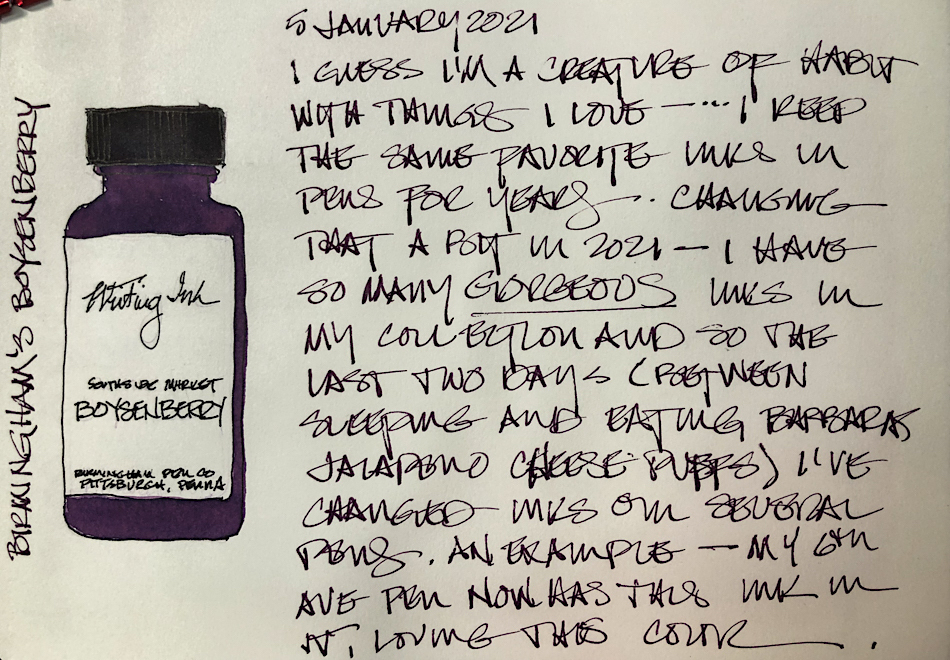 BIRMINGHAM'S BOYSENBERRY
Writing Ink
SOUTHSIDE MARKET
BOYSENBERRY
BIRMINGHAM PEN CO
PITTSBURGH, PENNA
5 JANUARY 2021
I GUESS I'M A CREATURE OF HABIT
WITH THINGS I LOVE —... I KEEP
THE SAME FAVORITE INKS IN
PENS FOR YEARS .. CHANGING
THAT A BIT IN 2021 — I HAVE
SO MANY GORGEOUS INKS IN
MY COLLECTION AND SO THE
LAST TWO DAYS (BETWEEN
SLEEPING AND EATING BARBARAS
JALAPENO CHEESE PUFFS) I'VE
CHANGED INKS ON SEVERAL
PENS. AN EXAMPLE — MY 6TH
AVE PEN NOW HAS THIS INK IN
IT, LOVING THIS COLOR.